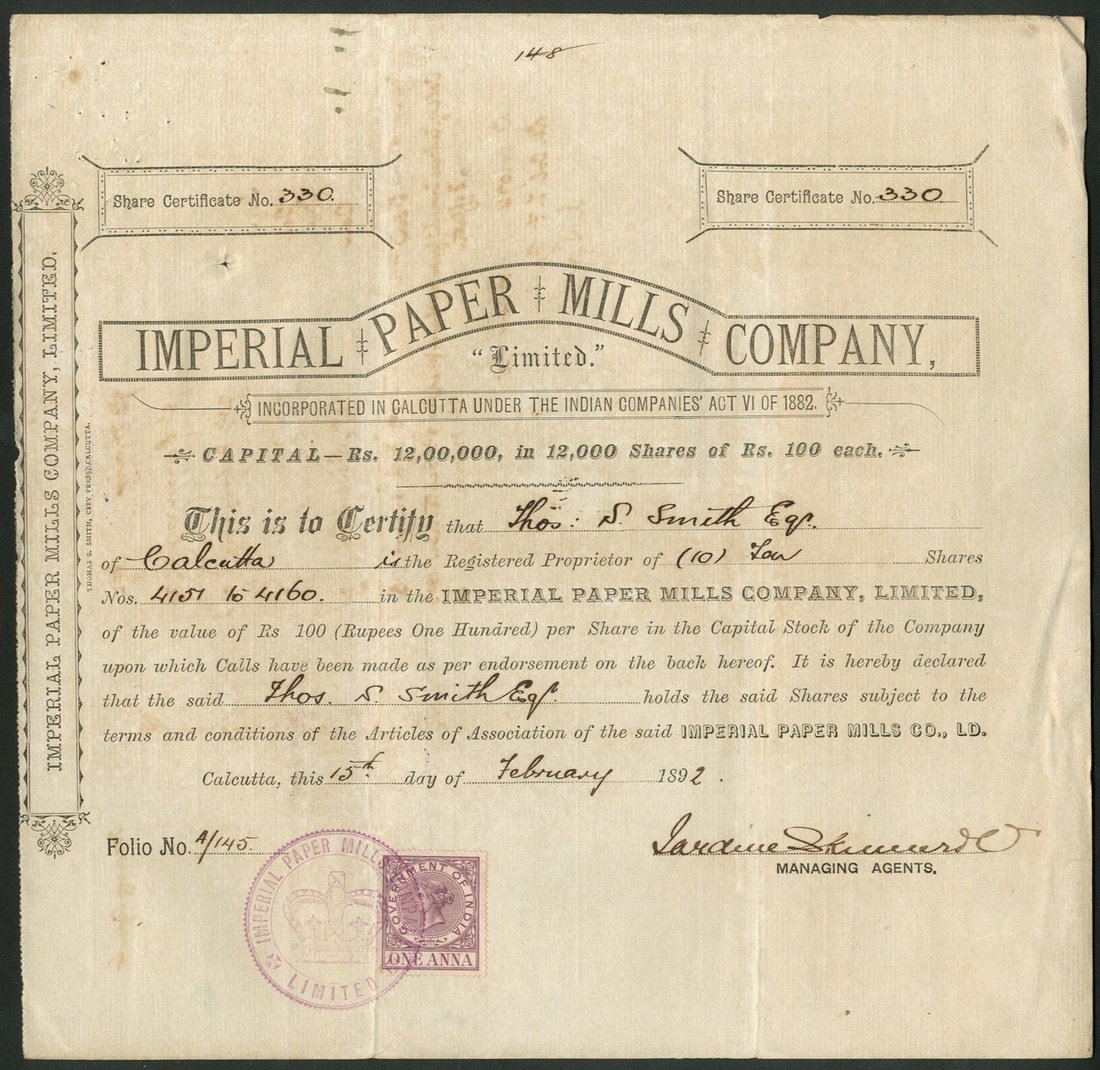 148
Share Certificate No. 330.
Share Certificate No. 330
IMPERIAL PAPER MILLS COMPANY,
"Limited."
INCORPORATED IN CALCUTTA UNDER THE INDIAN COMPANIES' ACT VI OF 1882.
CAPITAL—Rs. 12,00,000, in 12,000 Shares of Rs. 100 each.
This is to Certify that Thos: S. Smith Esqr.
of Calcutta is the Registered Proprietor of (10) Ten Shares
Nos. 4151 to 4160. in the IMPERIAL PAPER MILLS COMPANY, LIMITED,
of the value of Rs 100 (Rupees One Hundred) per Share in the Capital Stock of the Company
upon which Calls have been made as per endorsement on the back hereof. It is hereby declared
that the said Thos. S. Smith Esqr. holds the said Shares subject to the
terms and conditions of the Articles of Association of the said IMPERIAL PAPER MILLS CO., LD.
Calcutta, this 15th day of February 1892.
Folio No. A/145
Jardine Skinner & Co
MANAGING AGENTS.
IMPERIAL PAPER MILLS
LIMITED
GOVERNMENT OF INDIA
ONE ANNA
IMPERIAL PAPER MILLS COMPANY, LIMITED.
THOMAS S. SMITH, CITY PRESS, CALCUTTA.